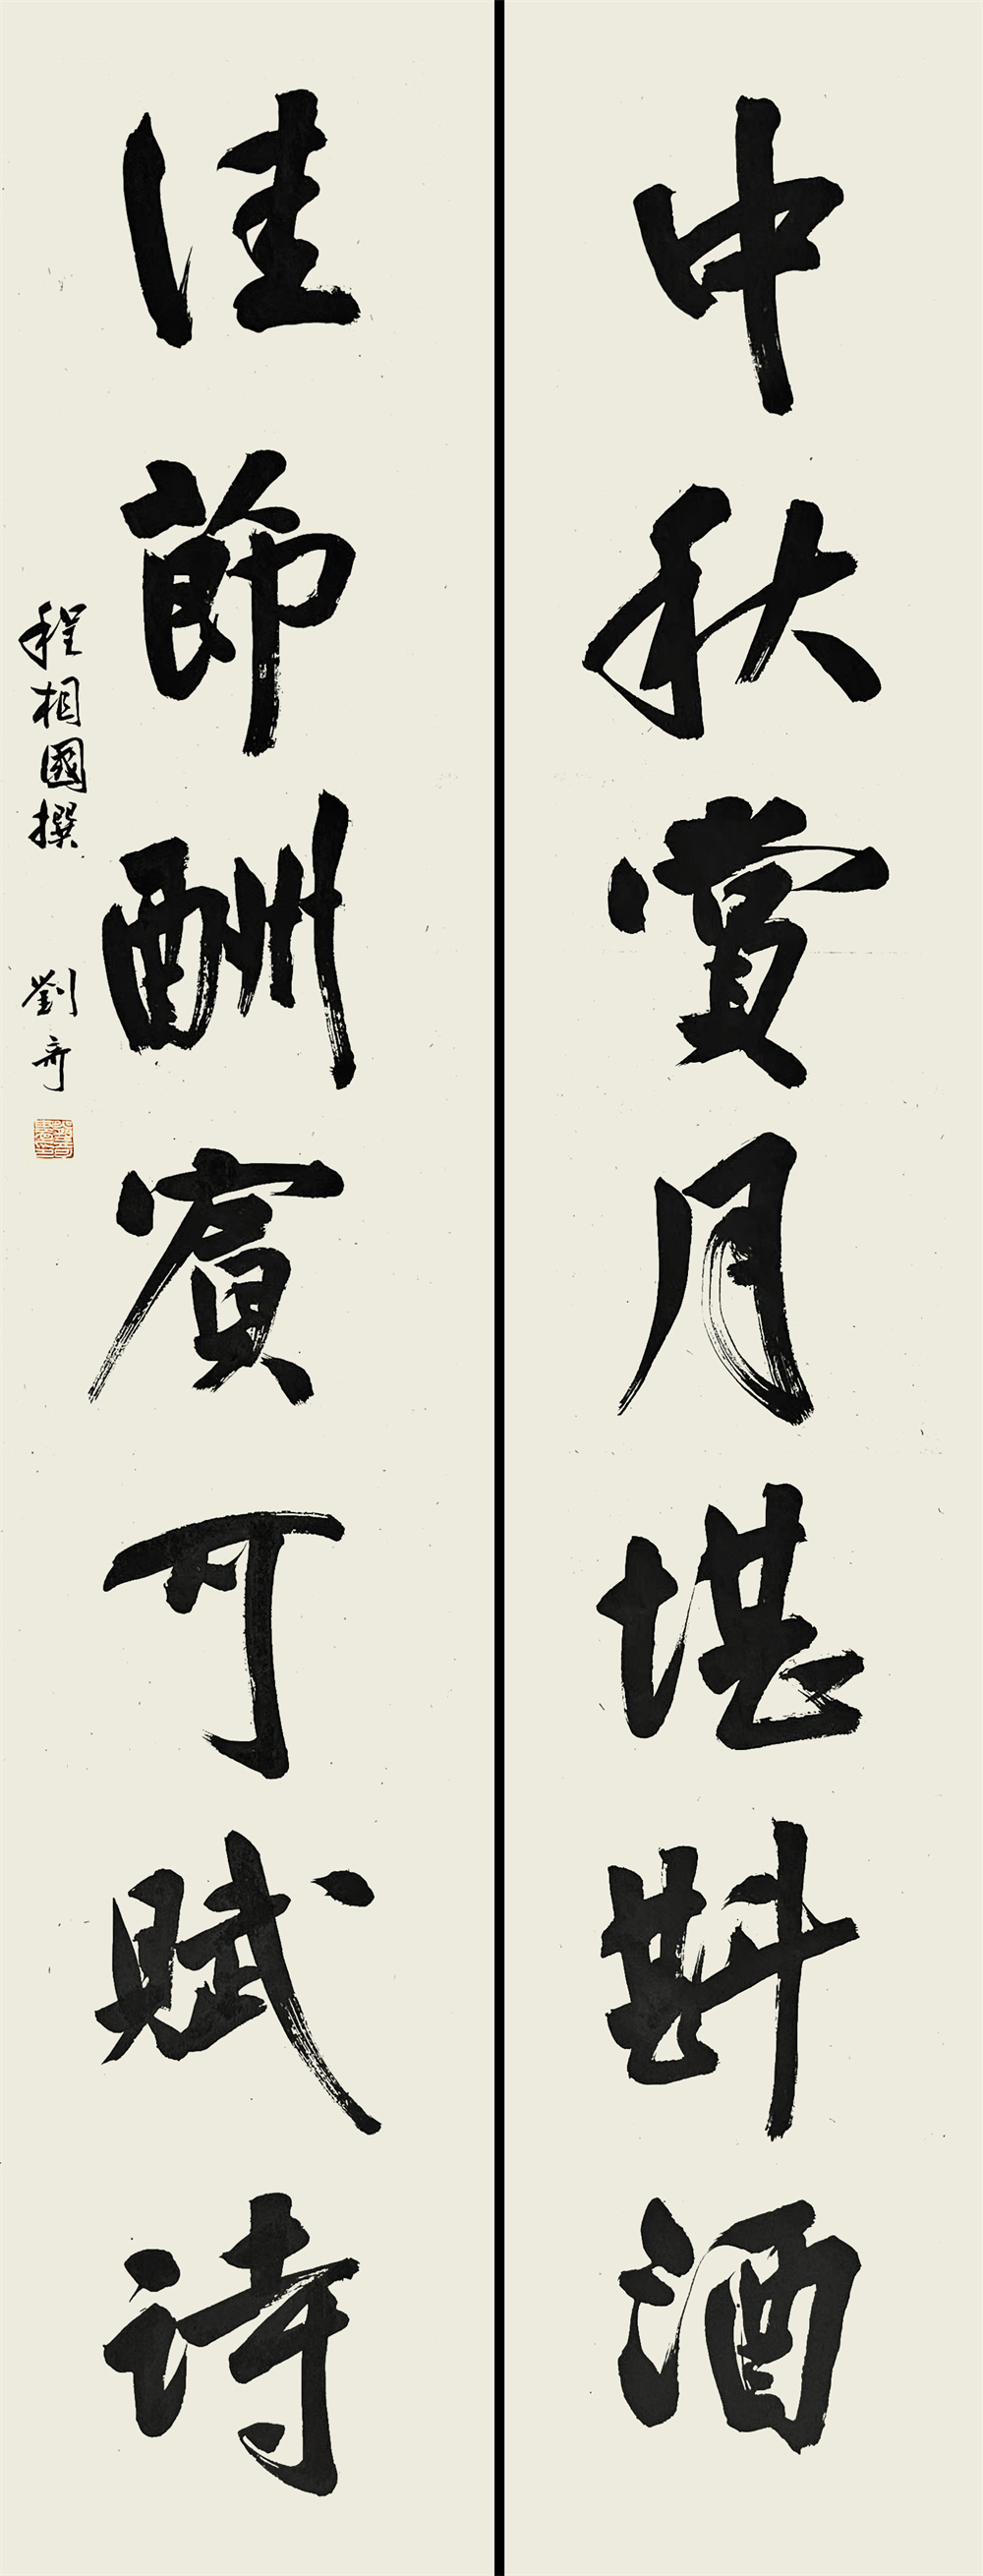 中秋赏月堪斟酒
佳節酬賓可賦诗
程相國撰
劉奇